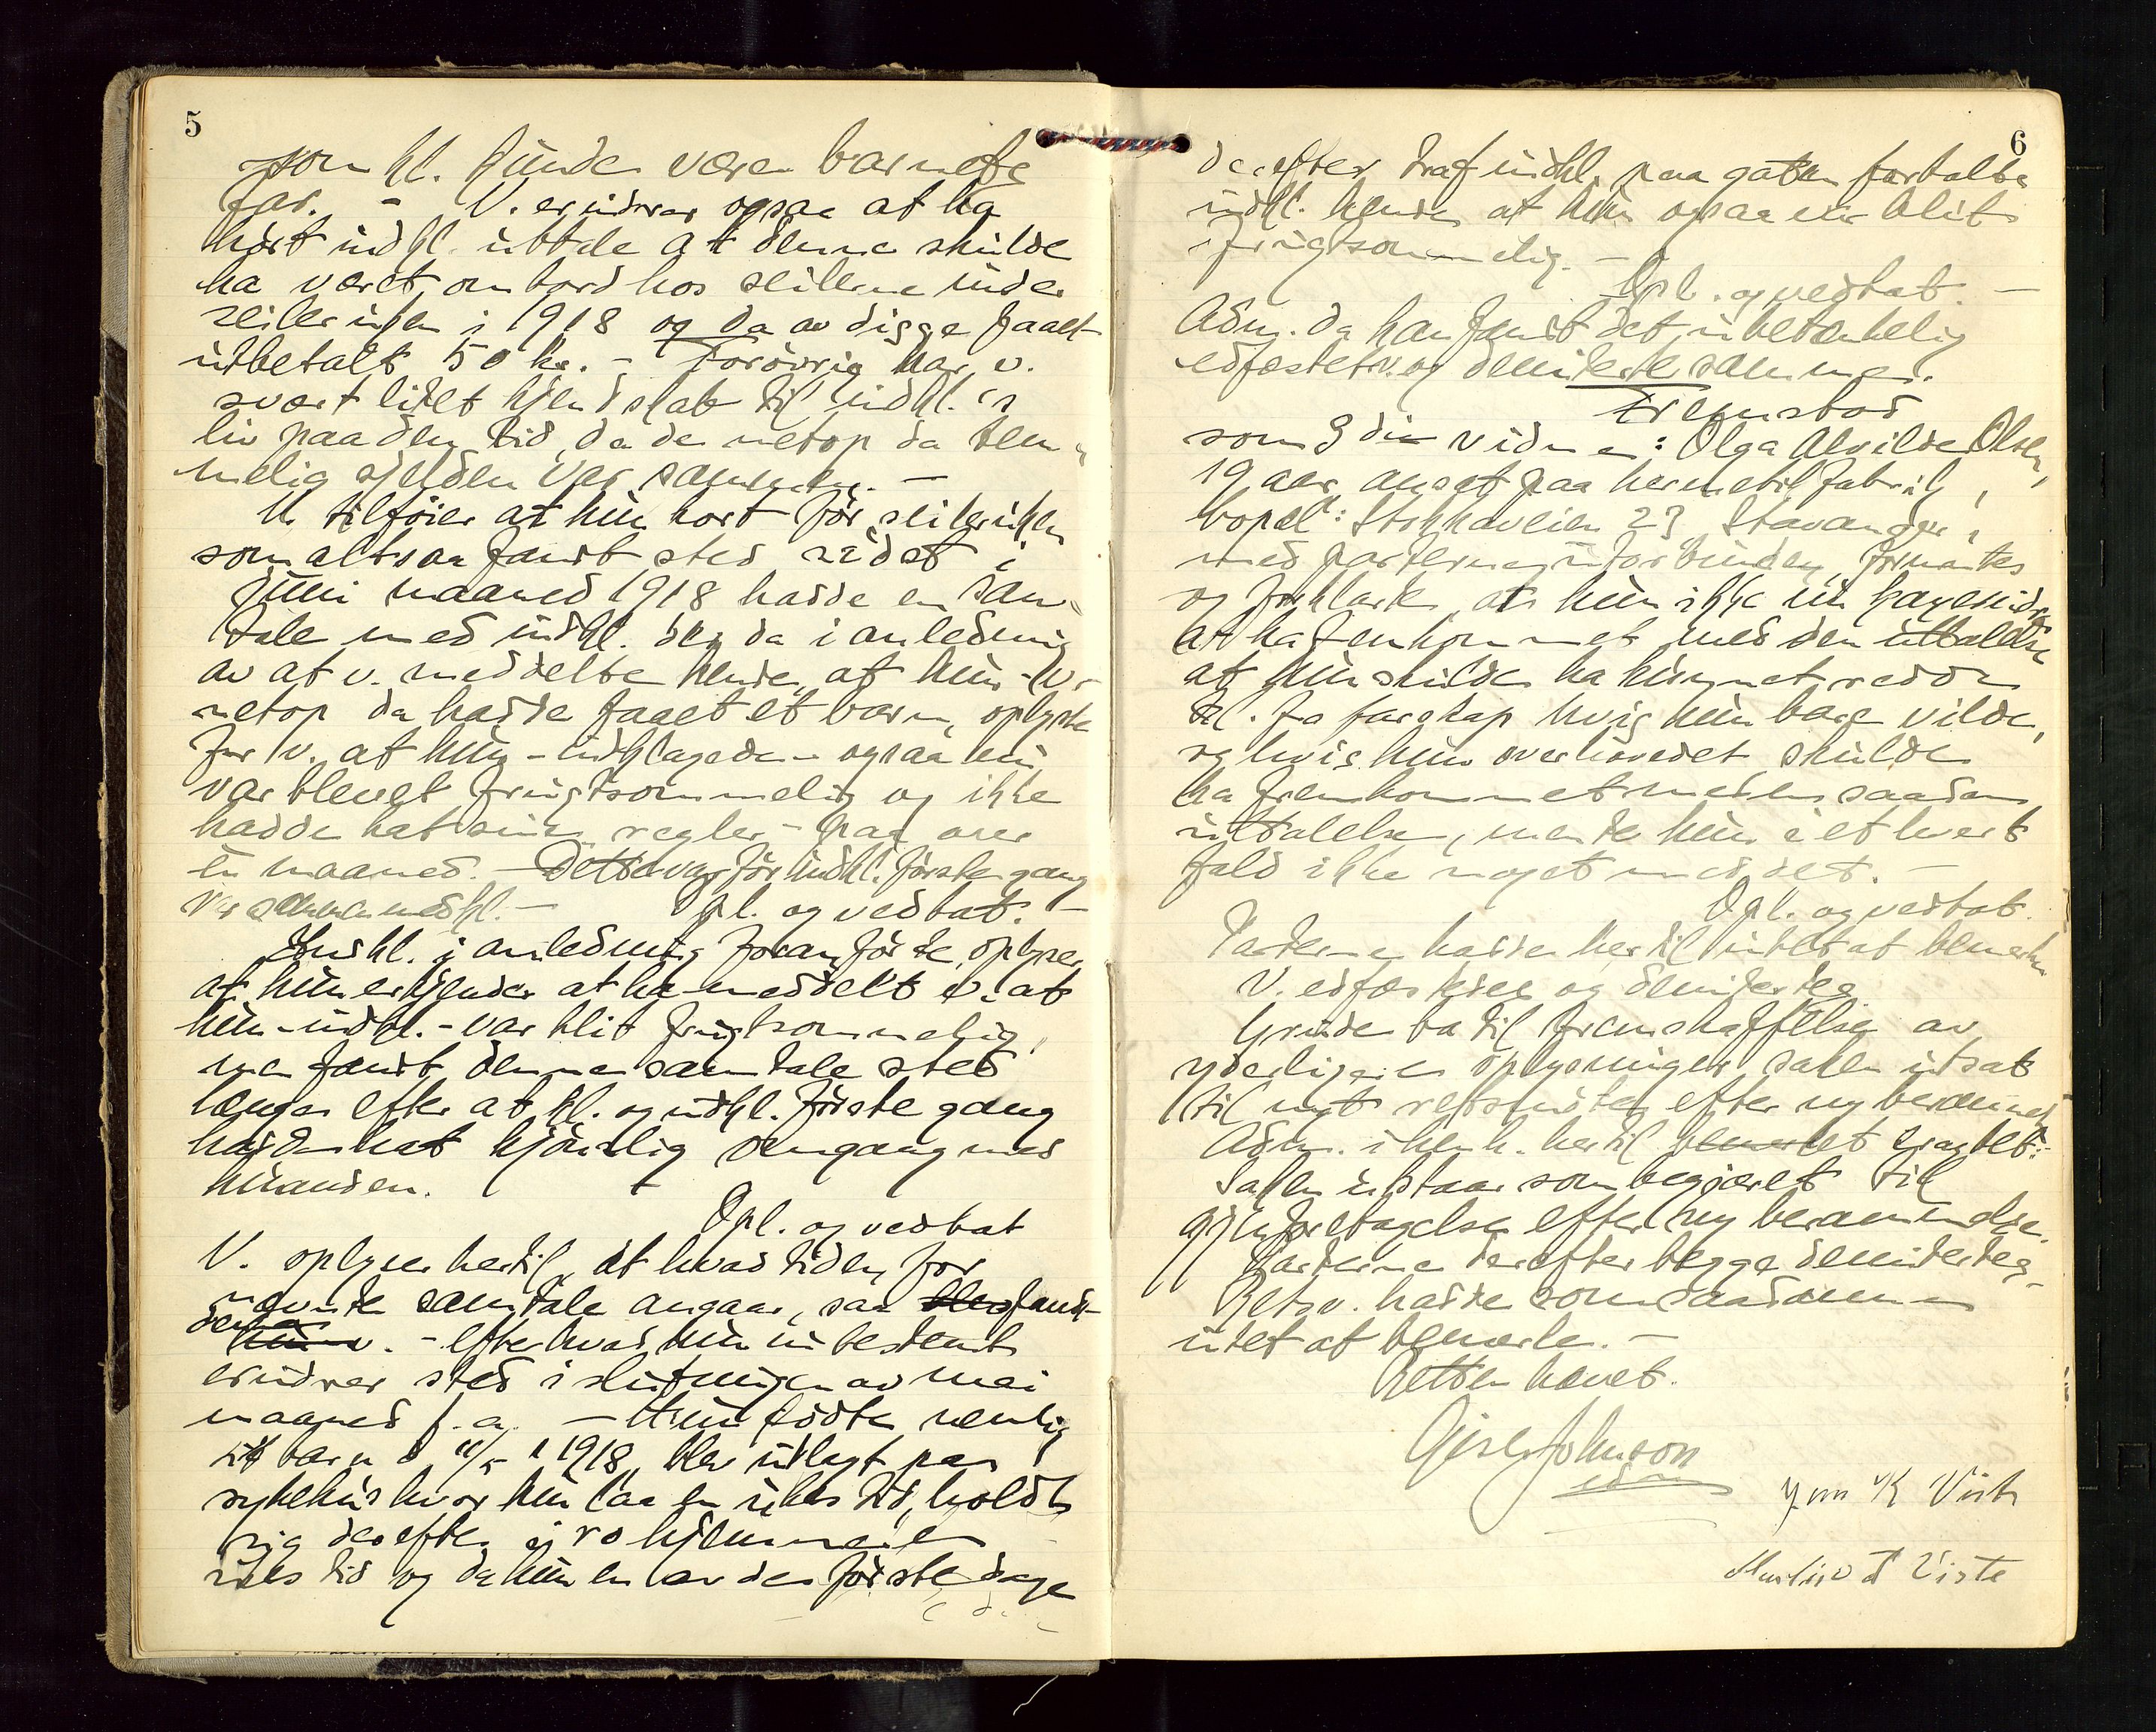 5
som kl. kunde være barnets
far. - V. erindrer ogsaa at ha
hørt indkl. uttale at denne skulde
ha været ombord hos seilerne under
seileruken i 1918 og da av disse faaet
utbetalt 50 kr. - Forøvrig har v.
svært litet kjendskab til indkl.'s
liv paa den tid, da de netop da tem-
melig sjelden var sammen. -
V. tilføier at hun kort før seileruken
som altsaa fandt sted sidst i
juni maaned 1918 hadde en sam-
tale med indkl. der da i anledning
av at v. meddelte hende, at hun - v. -
netop da hadde faaet et barn, oplyste
for v. at hun - indklagede - ogsaa nu
var blevet frugtsommelig og ikke
hadde hat sine regler paa over
en maaned. - Dette var før indkl. første gang
var sammen med kl. - Opl. og vedtat. -
Indkl. i anledning foranførte, oplyser
at hun erkjender at ha meddelt v. at
hun - indkl. - var blit frugtsommelig,
men fandt denne samtale sted
længe efter at kl. og indkl. første gang
hadde hat kjønslig omgang med
hinanden.
Opl. og vedtat
V. oplyser hertil, at hvad tiden for
nævnte samtale angaar, saa blev fandt
denne
hun v. - efter hvad hun nu bestemt
erindrer sted i slutningen av mai
maaned f.a. - Hun fødte nemlig
sit barn d 11/5 1918, blev utlagt paa
sykehus hvor hun laa en ukes tid, holdt
sig derefter i ro hjemme en
ukes tid og da hun en av de første dage
6
derefter traf indkl. paa gaten fortalte
indkl. hende at hun ogsaa var blit
frugtsommelig. -
Opl. og vedtat. -
Adm. da han fandt det ubetænkelig
edfæstet v. og demiterte samme.
Fremstod
som 3die vidne: Olga Alvilde Olsen,
19 aar, ansat paa hermetikfabrik,
bopæl: Stokkaveien 23 Stavanger,
med parterne uforbunden, formantes
og forklarte, at hun ikke nu kan erindre
at ha fremkommet med den uttalelse
at hun skulde ha kunnet redde
kl. fra farskap hvis hun bare vilde,
og hvis hun overhovedet skulde
ha fremkommet med en saadan
uttalelse, mente hun i et hvert
fald ikke noget med det. -
Opl. og vedtat.
Parterne hadde hertil intet at bemerke
V. edfæstedes og demitertes
Grundet ba til fremskaffelse av
yderligere oplysninger saken utsat
til nyt retsmøte efter ny berammelse
Adm. i henh. hertil bemerket eragtet:
Saken utstaar som begjæret til
gjenforetagelse efter ny berammelse.
Parterne derefter begge demitertes
Retsv. hadde som saadanne
intet at bemerke. -
Retten hævet.
Gisle Johnson
edm
K Viste
T Viste